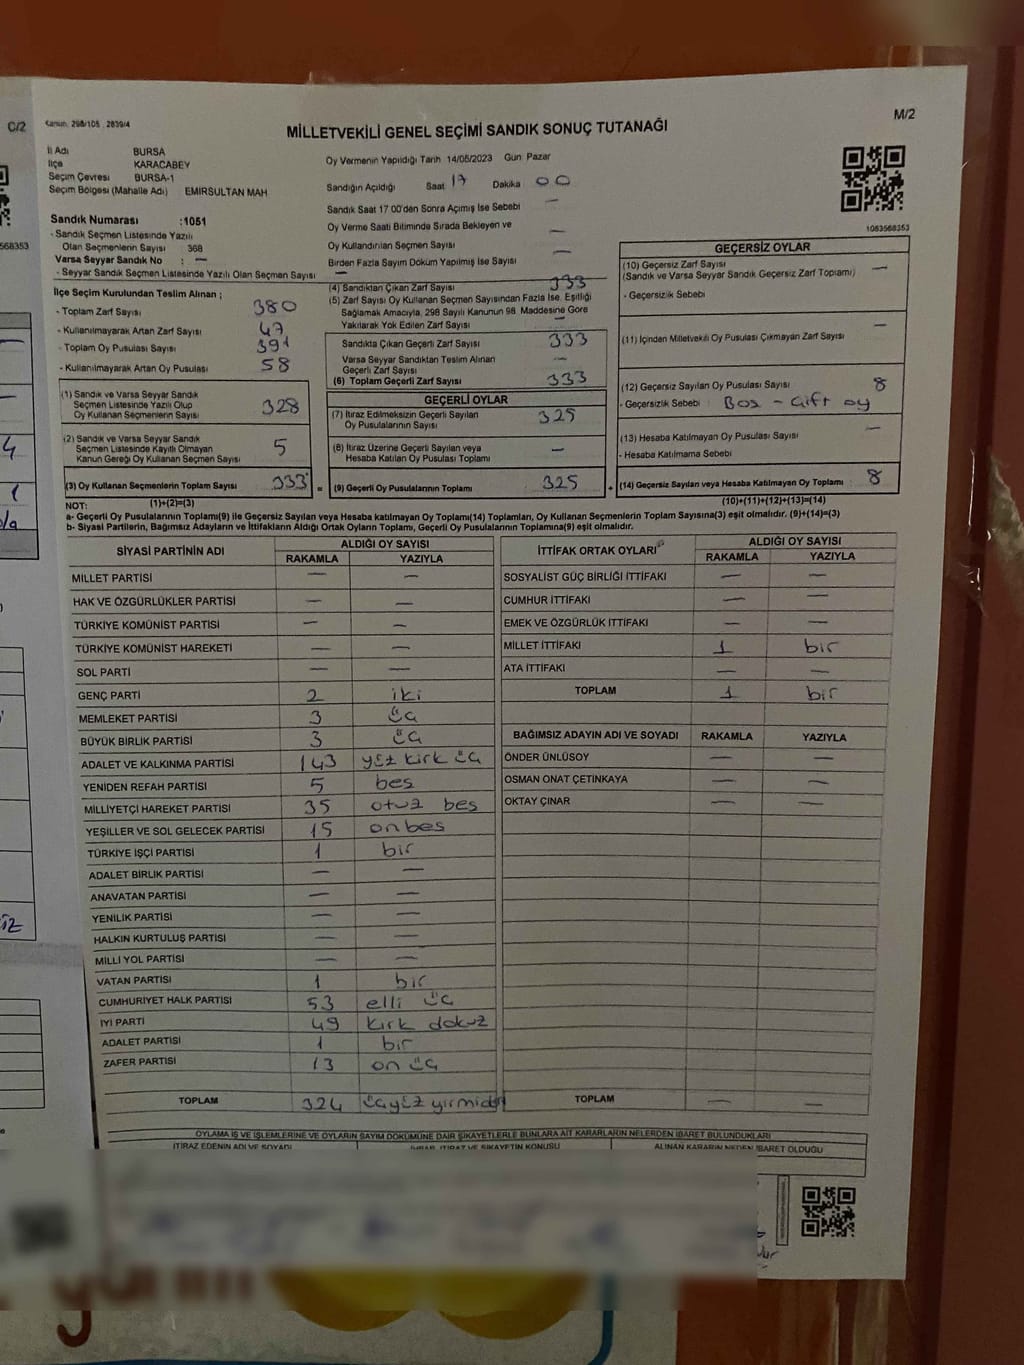 C/2
Kanun: 298/105, 2839/4
MİLLETVEKİLİ GENEL SEÇİMİ SANDIK SONUÇ TUTANAĞI
M/2
İl Adı BURSA
İlçe KARACABEY
Seçim Çevresi BURSA-1
Seçim Bölgesi (Mahalle Adı) EMİRSULTAN MAH
Oy Vermenin Yapıldığı Tarih 14/05/2023 Gün Pazar
Sandığın Açıldığı Saat 17 Dakika 00
Sandık Saat 17 00'den Sonra Açımış İse Sebebi —
Oy Verme Saati Bitiminde Sırada Bekleyen ve
Oy Kullandırılan Seçmen Sayısı —
Birden Fazla Sayım Döküm Yapılmış İse Sayısı —
1063568353
568353
Sandık Numarası :1051
- Sandık Seçmen Listesinde Yazılı
Olan Seçmenlerin Sayısı 368
Varsa Seyyar Sandık No : —
- Seyyar Sandık Seçmen Listesinde Yazılı Olan Seçmen Sayısı —
İlçe Seçim Kurulundan Teslim Alınan ;
- Toplam Zarf Sayısı 380
- Kullanılmayarak Artan Zarf Sayısı 47
- Toplam Oy Pusulası Sayısı 391
- Kullanılmayarak Artan Oy Pusulası 58
(1) Sandık ve Varsa Seyyar Sandık
Seçmen Listesinde Yazılı Olup
Oy Kullanan Seçmenlerin Sayısı 328
(2) Sandık ve Varsa Seyyar Sandık
Seçmen Listesinde Kayıtlı Olmayan
Kanun Gereği Oy Kullanan Seçmen Sayısı 5
(3) Oy Kullanan Seçmenlerin Toplam Sayısı 333 =
(4) Sandıktan Çıkan Zarf Sayısı 333
(5) Zarf Sayısı Oy Kullanan Seçmen Sayısından Fazla İse, Eşitliği
Sağlamak Amacıyla, 298 Sayılı Kanunun 98. Maddesine Göre
Yakılarak Yok Edilen Zarf Sayısı —
Sandıkta Çıkan Geçerli Zarf Sayısı 333
Varsa Seyyar Sandıktan Teslim Alınan
Geçerli Zarf Sayısı —
(6) Toplam Geçerli Zarf Sayısı 333
GEÇERLİ OYLAR
(7) İtiraz Edilmeksizin Geçerli Sayılan
Oy Pusulalarının Sayısı 325
(8) İtiraz Üzerine Geçerli Sayılan veya
Hesaba Katılan Oy Pusulası Toplamı —
(9) Geçerli Oy Pusulalarının Toplamı 325 +
GEÇERSİZ OYLAR
(10) Geçersiz Zarf Sayısı —
(Sandık ve Varsa Seyyar Sandık Geçersiz Zarf Toplamı)
- Geçersizlik Sebebi
(11) İçinden Milletvekili Oy Pusulası Çıkmayan Zarf Sayısı —
(12) Geçersiz Sayılan Oy Pusulası Sayısı 8
- Geçersizlik Sebebi : Boş - Çift oy
(13) Hesaba Katılmayan Oy Pusulası Sayısı —
- Hesaba Katılmama Sebebi
(14) Geçersiz Sayılan veya Hesaba Katılmayan Oy Toplamı : 8
NOT: (1)+(2)=(3) (10)+(11)+(12)+(13)=(14)
a- Geçerli Oy Pusulalarının Toplamı(9) ile Geçersiz Sayılan veya Hesaba katılmayan Oy Toplamı(14) Toplamları, Oy Kullanan Seçmenlerin Toplam Sayısına(3) eşit olmalıdır. (9)+(14)=(3)
b- Siyasi Partilerin, Bağımsız Adayların ve İttifakların Aldığı Ortak Oyların Toplamı, Geçerli Oy Pusulalarının Toplamına(9) eşit olmalıdır.
SİYASİ PARTİNİN ADI ALDIĞI OY SAYISI
RAKAMLA YAZIYLA
MİLLET PARTİSİ — —
HAK VE ÖZGÜRLÜKLER PARTİSİ — —
TÜRKİYE KOMÜNİST PARTİSİ — —
TÜRKİYE KOMÜNİST HAREKETİ — —
SOL PARTİ — —
GENÇ PARTİ 2 iki
MEMLEKET PARTİSİ 3 üç
BÜYÜK BİRLİK PARTİSİ 3 üç
ADALET VE KALKINMA PARTİSİ 143 yüz kırk üç
YENİDEN REFAH PARTİSİ 5 beş
MİLLİYETÇİ HAREKET PARTİSİ 35 otuz beş
YEŞİLLER VE SOL GELECEK PARTİSİ 15 onbeş
TÜRKİYE İŞÇİ PARTİSİ 1 bir
ADALET BİRLİK PARTİSİ — —
ANAVATAN PARTİSİ — —
YENİLİK PARTİSİ — —
HALKIN KURTULUŞ PARTİSİ — —
MİLLİ YOL PARTİSİ — —
VATAN PARTİSİ 1 bir
CUMHURİYET HALK PARTİSİ 53 elli üç
İYİ PARTİ 49 kırk dokuz
ADALET PARTİSİ 1 bir
ZAFER PARTİSİ 13 on üç
TOPLAM 324 üçyüz yirmidört
İTTİFAK ORTAK OYLARI ALDIĞI OY SAYISI
RAKAMLA YAZIYLA
SOSYALİST GÜÇ BİRLİĞİ İTTİFAKI — —
CUMHUR İTTİFAKI — —
EMEK VE ÖZGÜRLÜK İTTİFAKI — —
MİLLET İTTİFAKI 1 bir
ATA İTTİFAKI — —
TOPLAM 1 bir
BAĞIMSIZ ADAYIN ADI VE SOYADI RAKAMLA YAZIYLA
ÖNDER ÜNLÜSOY — —
OSMAN ONAT ÇETİNKAYA — —
OKTAY ÇINAR — —
TOPLAM — —
OYLAMA İŞ VE İŞLEMLERİNE VE OYLARIN SAYIM DÖKÜMÜNE DAİR ŞİKAYETLERLE BUNLARA AİT KARARLARIN NELERDEN İBARET BULUNDUKLARI
İTİRAZ EDENİN ADI VE SOYADI İHBAR, İTİRAZ VE ŞİKAYETİN KONUSU ALINAN KARARIN NEDEN İBARET OLDUĞU